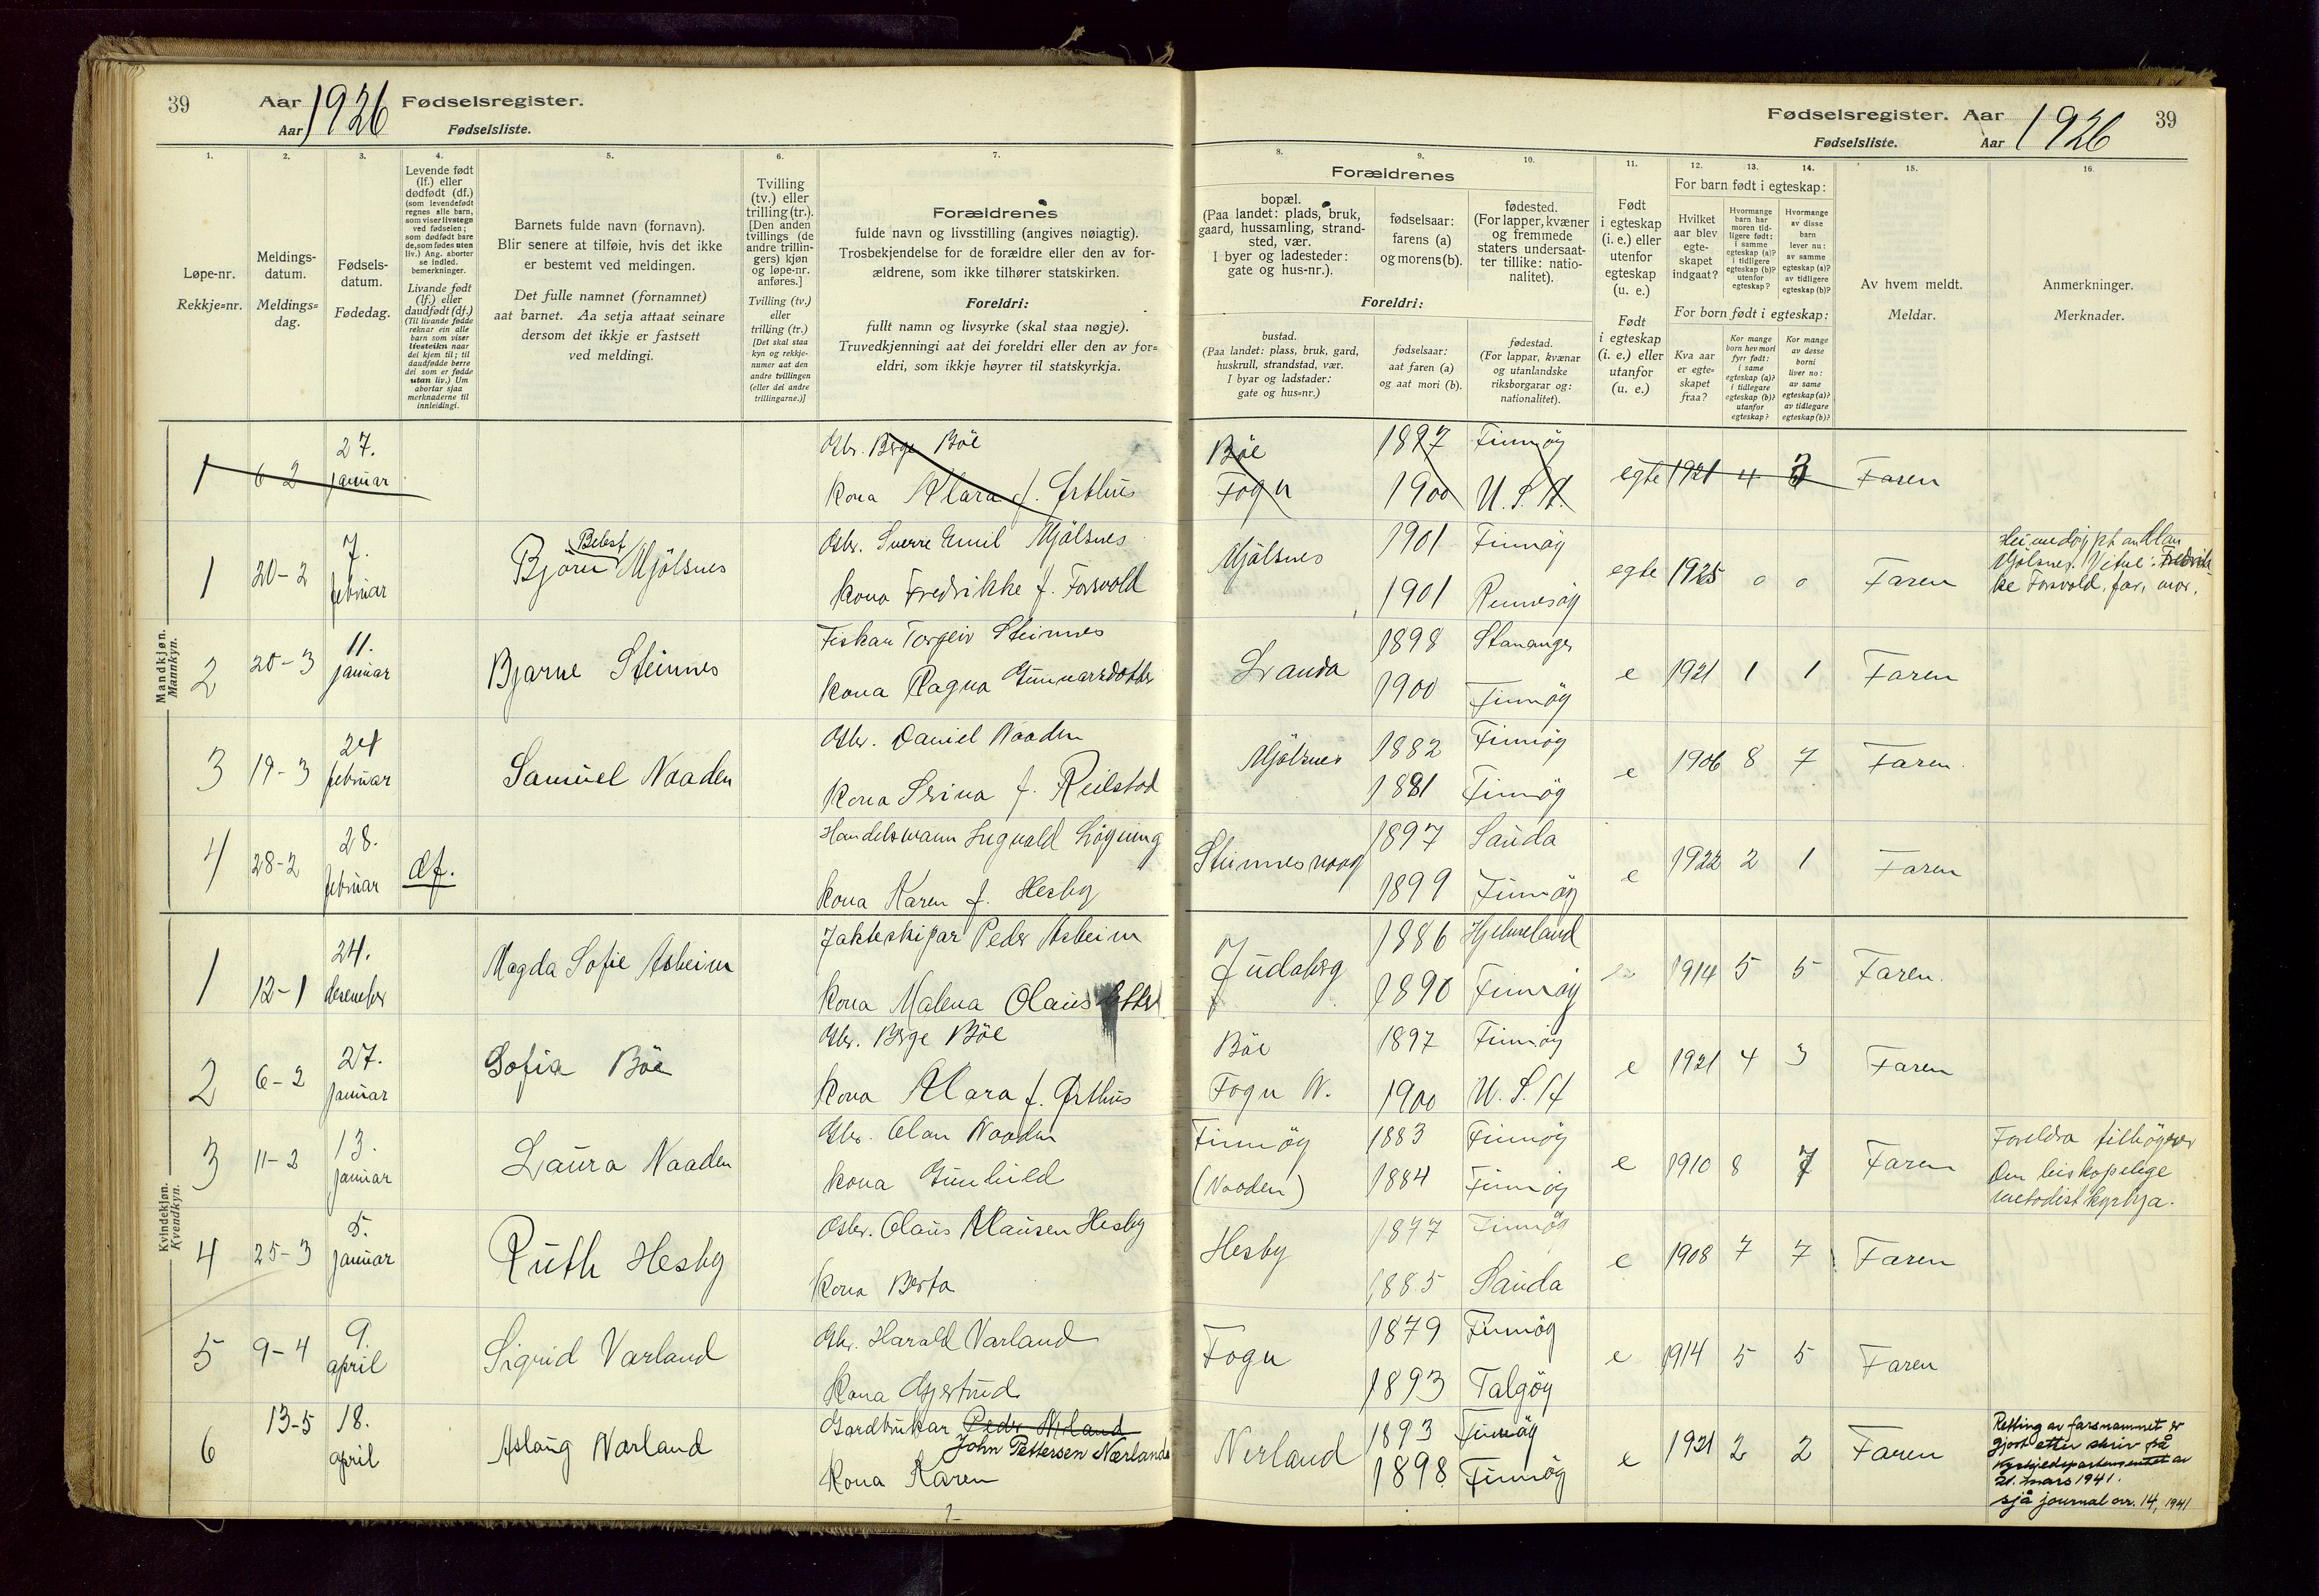 39
Aar 1926 Fødselsregister.
Aar Fødselsliste.
Fødselsregister. Aar 1926 39
Fødselsliste. Aar
1. 2. 3. 4. 5. 6. 7.
8. 9. 10. 11. 12. 13. 14. 15. 16.
Løpe-nr.
Rekkje=nr.
Meldings-
datum.
Meldings=
dag.
Fødsels-
datum.
Fødedag.
Levende født
(lf.) eller
dødfødt (df.)
(som levendefødt
regnes alle barn,
som viser livstegn
ved fødselen;
som dødfødt bare
de, som fødes uten
liv.) Ang. aborter
se indled.
bemerkninger.
Livande født
(lf.) eller
daudfødt (df.)
(Til livande fødde
reknar ein alle
barn som viser
livsteikn naar
dei kjem til; til
daudfødde berre
dei som er fødde
utan liv.) Um
abortar sjaa
merknaderne til
innleidingi.
Barnets fulde navn (fornavn).
Blir senere at tilføie, hvis det ikke
er bestemt ved meldingen.
Det fulle namnet (fornamnet)
aat barnet. Aa setja attaat seinare
dersom det ikkje er fastsett
ved meldingi.
Tvilling
(tv.) eller
trilling (tr.).
[Den anden
tvillings (de
andre trillin-
gers) kjøn
og løpe-nr.
anføres.]
Tvilling (tv.)
eller
trilling (tr.)
[Det skal staa
kyn og rekkje-
numer aat den
andre tvillingen
(eller dei andre
trillingarne.)]
Forældrenes
fulde navn og livsstilling (angives nøiagtig).
Trosbekjendelse for de forældre eller den av for-
ældrene, som ikke tilhører statskirken.
Foreldri:
fullt namn og livsyrke (skal staa nøgje).
Truvedkjenningi aat dei foreldri eller den av for=
eldri, som ikkje høyrer til statskyrkja.
Forældrenes
bopæl.
(Paa landet: plads, bruk,
gaard, hussamling, strand-
sted, vær.
I byer og ladesteder:
gate og hus-nr.).
fødselsaar:
farens (a)
og morens (b).
fødested.
(For lapper, kvæner
og fremmede
staters undersaat-
ter tillike: natio-
nalitet).
Foreldri:
bustad.
(Paa landet: plass, bruk, gard,
huskrull, strandstad, vær.
I byar og ladstader:
gate og hus=nr.)
fødselsaar:
aat faren (a)
og aat mori (b).
fødestad.
(For lappar, kvænar
og utanlandske
riksborgarar og:
nationalitet).
Født
i egteskap
(i. e.) eller
utenfor
egteskap
(u. e.)
Født
i egteskap
(i. e.) eller
utanfor
(u. e.)
For barn født i egteskap:
Hvilket
aar blev
egte-
skapet
indgaat?
Hvormange
barn har
moren tid-
ligere født:
i samme
egteskap (a)?
i tidligere
egteskap (b)?
utenfor
egteskap?
Hvormange
av disse
barn
lever nu:
av samme
egteskap (a)?
av tidligere
egteskap (b)?
For born født i egteskap:
Kva aar
er egte=
skapet
fraa?
Kor mange
born hev mori
fyrr født:
i same
egteskap (a)?
i tidlegare
egteskap (b)?
utanfor
egteskap?
Kor mange
av desse
borni
liver no:
av same
egteskap (a)?
av tidlegare
egteskap (b)?
Av hvem meldt.
Meldar.
Anmerkninger.
Merknader.
Mandkjøn.
Mannkyn.
1 6 2 27. januar Gbr. Berge Böe Kona Klara f. Østhus Böe Fogn 1897 1900 Finnöy U.S.A. egte 1921 4 3 Faren
1 20-2 7. februar Björn Mjölsnes Gbr. Sverre Emil Mjölsnes Kona Fredrikke f. Forsvold Mjölsnes 1901 1901 Finnöy Rennesöy egte 1925 0 0 Faren
Mjölsnes. Forsvold, far, mor.
2 20-3 11. januar Bjarne Steinnes Fiskar Torgeir Steinnes Kona Ragna Gunnarsdotter Landa 1898 1900 Stavanger Finnöy e 1921 1 1 Faren
3 19-3 24 februar Samuel Naaden Gbr. Daniel Naaden Kona Serina f. Reilstad Mjölsnes 1882 1881 Finnöy Finnöy e 1906 8 7 Faren.
4 28-2 28. februar df. Handelsmann Ingvald Lögning Kona Karen f. Hesby Steinnesvaag 1897 1899 Sauda Finnöy e 1922 2 1 Faren
Kvindekjøn.
Kvendkyn.
1 12-1 24. desember Magda Sofie Asheim Jakteskipar Peder Asheim Kona Malena Olausdotter Judaberg 1886 1890 Hjelmeland Finnöy e 1914 5 5 Faren.
2 6-2 27. januar Sofia Böe Gbr. Berge Böe Kona Klara f. Østhus Böe Fogn N. 1897 1900 Finnöy U.S.A e 1921 4 3 Faren
3 11-2 13. januar Laura Naaden Gbr. Olav Naaden Kona Gunhild Finnöy (Naaden) 1883 1884 Finnöy Finnöy e 1910 8 7 Faren
Foreldra tilhöyrer
Den biskopelege
metodistkyrkja.
4 25-3 5. januar Ruth Hesby Gbr. Olaus Klausen Hesby Kona Berta Hesby 1877 1885 Finnöy Sauda e 1908 7 7 Faren
5 9-4 9. april Sigrid Varland Gbr. Harald Varland Kona Gjertrud Fogn 1879 1893 Finnöy Talgöy e 1914 5 5 Faren
6 13-5 18. april Aslaug Nærland Gardbrukar Peder Nerland John Pettersen Nærland Kona Karen Nerland 1893 1898 Finnöy Finnöy e 1921 2 2 Faren
Retting av farsnamnet er
gjort etter skriv frå
Kyrkjedepartementet av
21. mars 1941.
sjå journal nr. 14, 1941